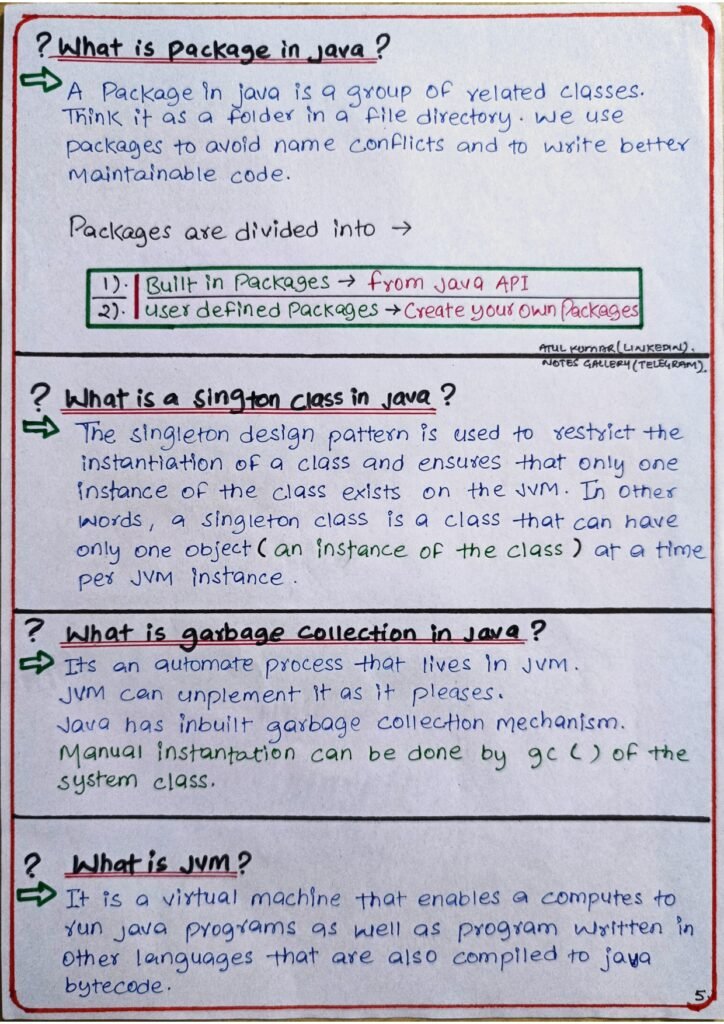 ? What is package in java?
A Package in java is a group of related classes.
Think it as a folder in a file directory. We use
packages to avoid name conflicts and to write better
maintainable code.
Packages are divided into →
1). Built in Packages → from java API
2). user defined Packages → Create your own Packages
ATUL KUMAR (LINKEDIN).
NOTES GALLERY (TELEGRAM).
? What is a sington class in java?
The singleton design pattern is used to restrict the
instantiation of a class and ensures that only one
instance of the class exists on the JVM. In other
words, a singleton class is a class that can have
only one object (an instance of the class) at a time
per JVM instance.
? What is garbage collection in java?
Its an automate process that lives in JVM.
JVM can unplement it as it pleases.
Java has inbuilt garbage collection mechanism.
Manual instantation can be done by gc () of the
system class.
? What is JVM?
It is a virtual machine that enables a computes to
run java programs as well as program written in
other languages that are also compiled to java
bytecode.
5